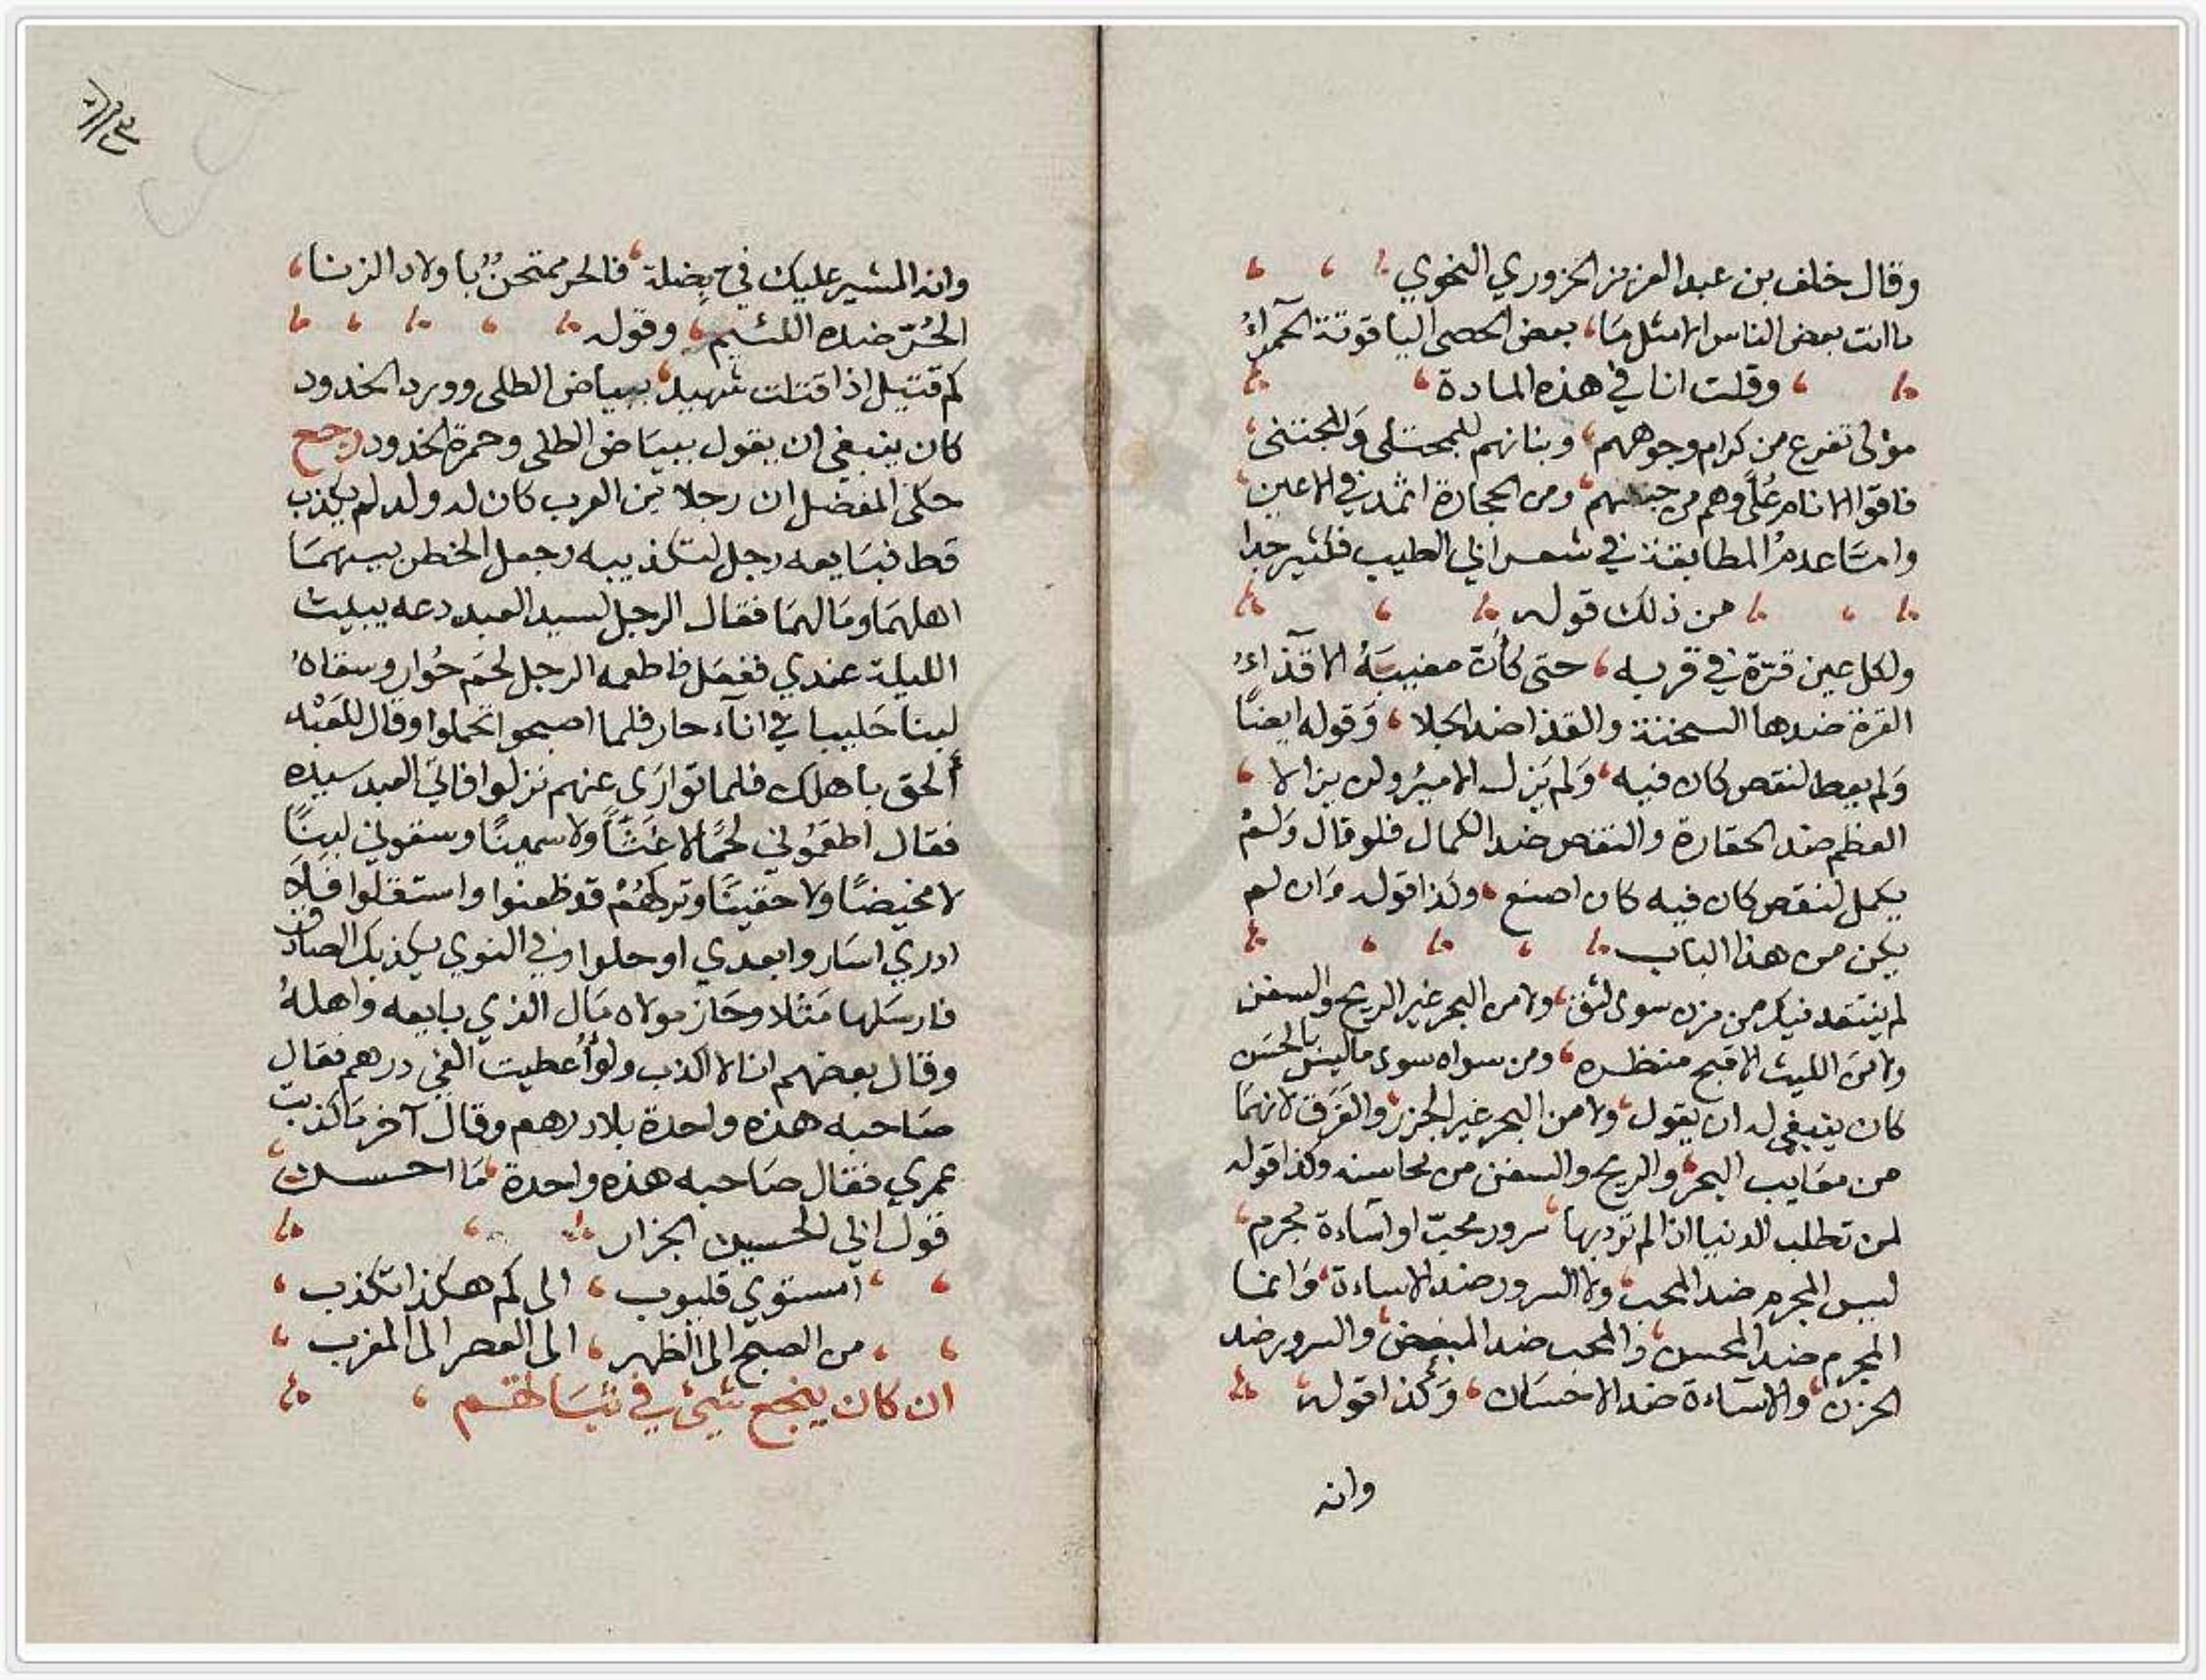 وقال خلف بن عبد العزيز الحزوري النحوي
ما انت بعض الناس الا مثل ما، بعض الحصى الياقوتة الحمراءُ
وقلت انا في هذه المادة
مولى تفرع من كرام وجوههم، وبنانهم للمجتلى وللمجتنى
فاقوا الانام عُلًى وهم من جنسهم، ومن الحجارة اثمد في الاعين
وامّا عدم المطابقة في شعر ابي الطيب فكثير جدا
من ذلك قوله
ولكل عين قرّة في قربه، حتى كأن مغيبه الاقذاءُ
القرة ضدها السخنة والقذا ضد الجلا، وقوله ايضًا
ولم يعظم لنقص كان فيه، ولم يَزل الاميرُ ولن يزالا
العظم ضد الحقارة والنقص ضد الكمال فلو قال ولمْ
يكمل لنقص كان فيه كان اصنع، وكذا قوله وان لم
يكن من هذا الباب
لم نفتقد فيك من مزن سوى لثق، ولا من البحر غير الريح والسفن
ولا من الليث الا قبح منظره، ومن سواه سوى ما ليس بالحسن
كان ينبغي له ان يقول، ولا من البحر غير الجزر والغرق لانهما
من معايب البحر، والريح والسفن من محاسنه وكذا قوله
لمن تطلب الدنيا اذا لم ترد بها، سرور محبّ او اساءة مجرم
ليس المجرم ضد المحب، ولا السرور ضد الاساءة، وانما
المجرم ضد المحسن، والمحب ضد المبغض، والسرور ضد
الحزن، والاساءة ضد الاحسان، وكذا قوله
وانه
وانه المشير عليك فيّ بضلة، فالحر ممتحنٌ باولاد الزنا،
الحُرّ ضده اللئيم، وقوله
كم قتيل اذا قتلت شهيد، ببياض الطلى وورد الخدود
كان ينبغي ان يقول ببياض الطلى وحمرة الخدود رجح
حكى المفضل ان رجلا من العرب كان له ولد لم يكذب
قط فبايعه رجل لتكذيبه وجعل الخطر بينهما
اهلهما ومالهما فقال الرجل لسيد العبد دعه يبيت
الليلة عندي ففعل فاطعمه الرجل لحم حُوار وسقاهُ
لبنا حَليبا في اناء حار فلما اصبحوا تحملوا وقال للعَبْد
ألحق باهلك فلما توارَى عنهم نزلوا فاتى العبد سيده
فقال اطعمُوني لحمًا لا غَثًّا ولا سمينًا وسقوني لبنًا
لا مخيضًا ولا حقينًا وتركتهُمْ قد ظعنوا واستقلوا فلا
ادري اسَاروا بعدي او حلوا وفي النوى يكذبك الصادق
فارسَلها مَثلا وحَاز مولاه مَال الذي بايعه واهلهُ
وقال بعضهم انا لا اكذب ولو أُعطيت الفي درهم فقال
صَاحبه هذه واحدة بلا درهم وقال آخر ما كذبت
عمري فقال صَاحبه هذه واحدة، مَا احسن
قول ابي الحسين الجزار
امستوي قليوب، الى كم هكذا تكذب،
من الصبح الى الظهر، الى العصر الى المغرب،
ان كان ينجع شئ في ثباتهم